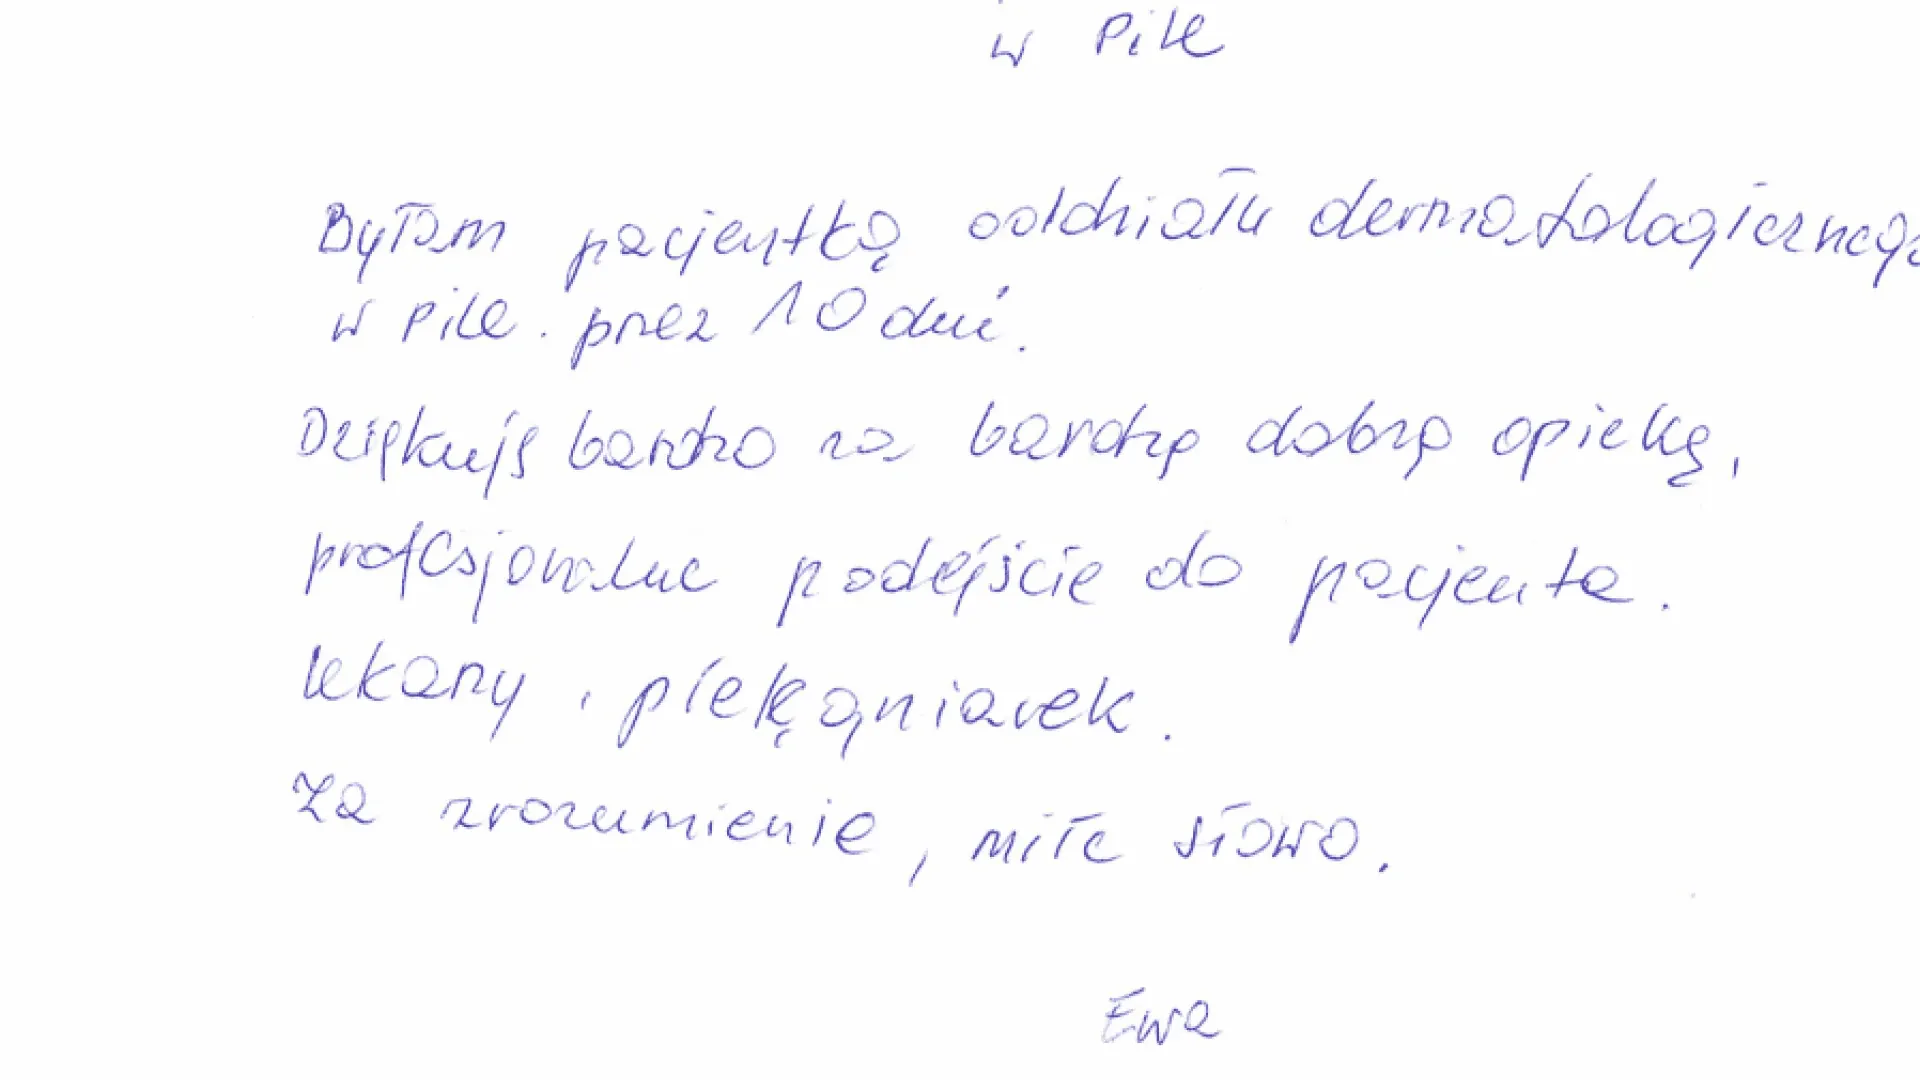 w Pile
Byłam pacjentką oddziału dermatologicznego
w Pile. przez 10 dni.
Dziękuję bardzo za bardzą dobrą opieką,
profesjonalne podejście do pacjenta.
lekarzy i pielęgniarek.
Za zrozumienie, miłe słowo.
Ewa